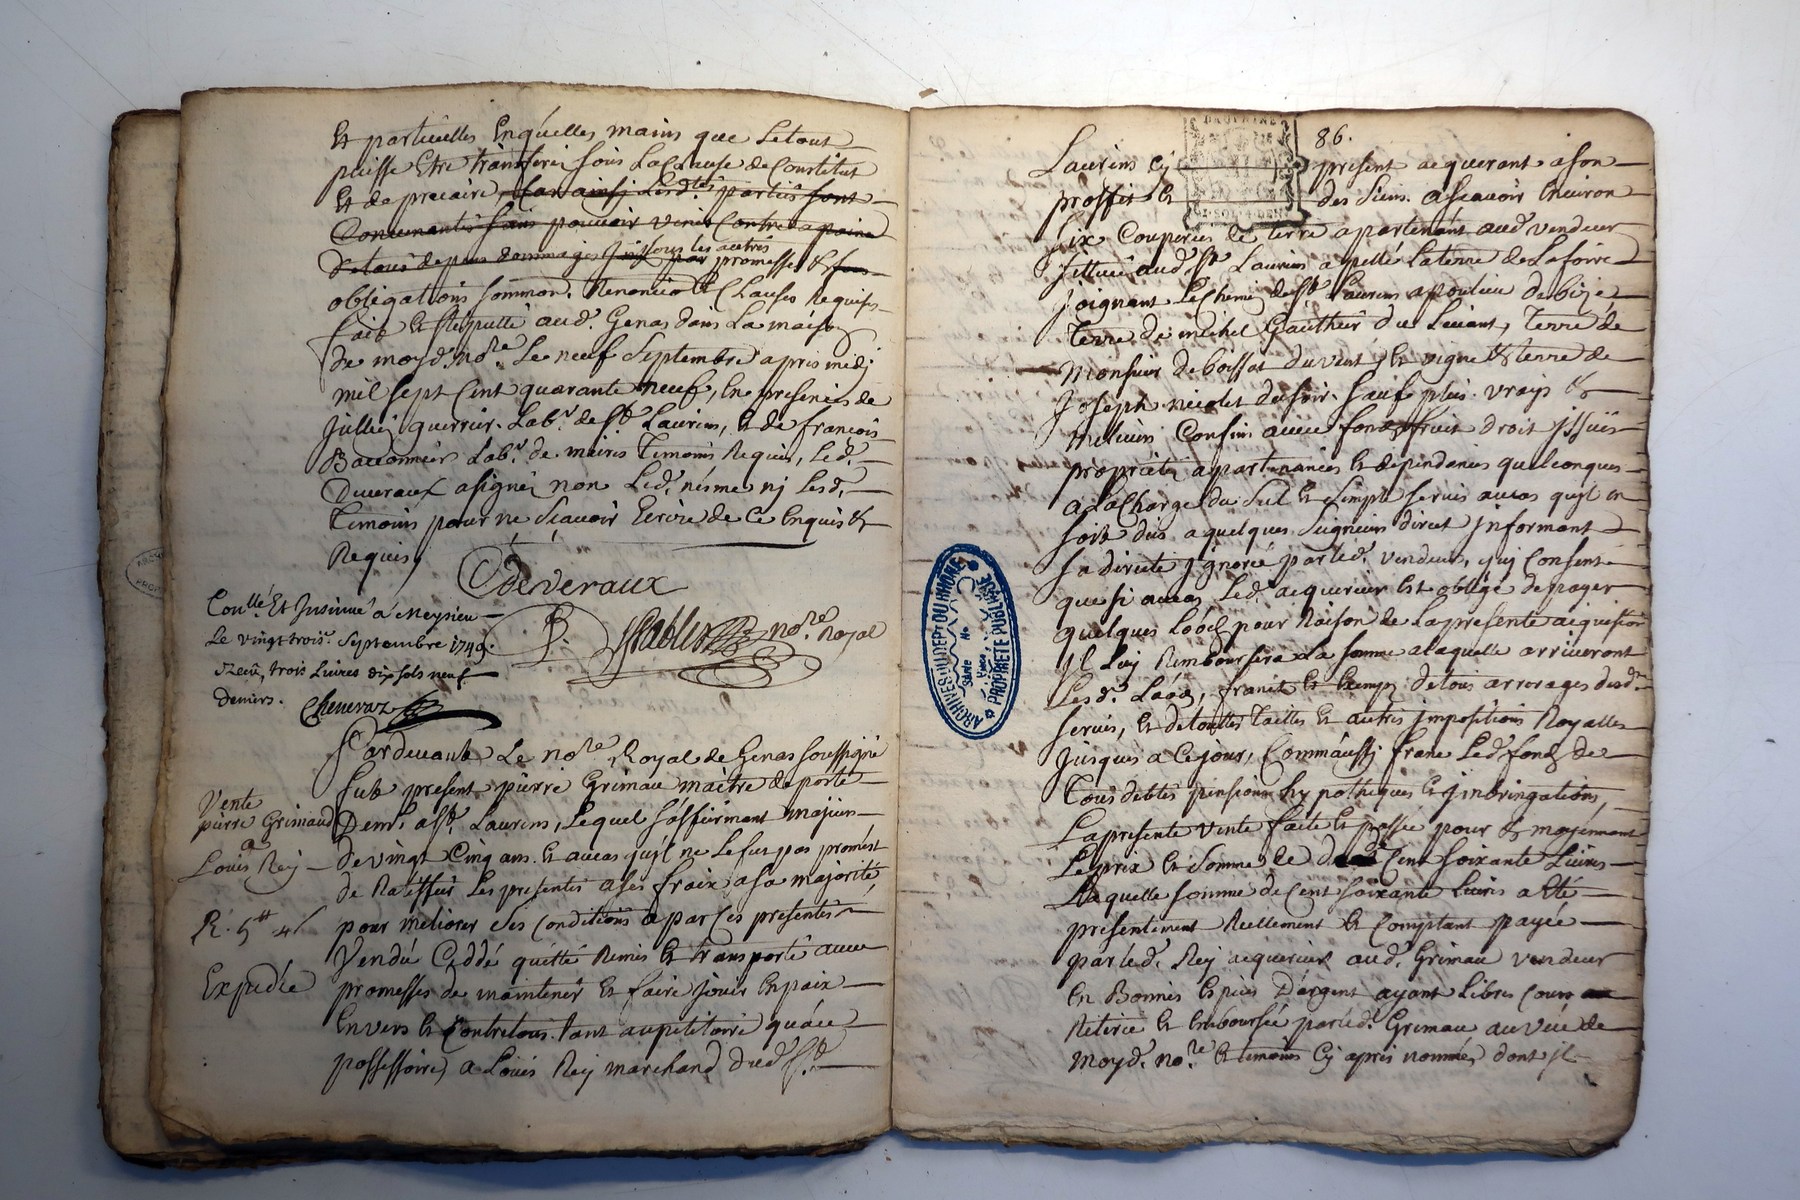 Et particulles Enquelles mains que Letout
puisse Etre transferé sous La Clause de Constitut
Et de precaire, Car ainsi Lesd.tes parties sont
Convenantes sans pouvoir venir Contre a paine
De tous depens dommages & sous les autres promesses &
obligations sommon. Renonciaõn & Clauses Requises
fait Et stepullé aud. Genas dans La maison
de moyd. no.re Le neuf Septembre apres midj
mil sept Cent quarante neuf, En presences de
Jullien guerrier. Lab.r de S.t Laurins, Et de francois
Bauonnier Lab.r de meiris Temoins Requis, Led.
Deveraux asigné non Led. nésme nj Lesd.
Temoins pour ne Scavoir Ecrire de Ce Enquis &
Requis
Deveraux
no.re Royal
Con.llé Et Insinué a Meysieu
Le vingt trois.e Septembre 1749.
Recu, trois Livres dix sols neuf
deniers. Cheneraz
Pardevant Le no.re Royal de Genas soussigné
fut present pierre Grimau maitre de poste
Dem.t a S.t Laurins, Lequel s'affirmant majeur
de vingt Cinq ans. Et aucas quyl ne Lefut pas promést
de Ratiffier Les presentes a ses fraix a sa majorité,
pour meliorer ses Conditions a par Ces presentes
Vendu Ceddé quitté Remis Et transporté avec
promesses de maintenir Et faire Jouir En paix
Envers Et Contre tous. Tant au petitoire qu'au
possessoire, a Louis Rey marchand dud S.t
Vente
pierre Grimaud
a
Louis Rey
R. 5tt 4s
Expediée
86.
Laurins Cy present acquerant a son
proffit Et des siens. Ascavoir Environ
six Couperées de terre apartenant aud vendeur
sittuée aud S.t Laurins appellé La terre de La foire
Joignant Le Chemin de S.t Laurins a poulieu de bize
Terre de michel Gauthier du Levant, Terre de
Monsieur de boissat du vent, Et vigne & terre de
Joseph nicolet du soir. sauf plus. vrays &
meilieurs Confins avec fonds fruit droit Issües
proprietés apartenances Et dependances quelconques
a La Charge du Seul Et Simple servis aucas quyl en
soit dus a quelques Seigneurs direct Informant
sa directe Ignorée par led. vendeur, quj Consent
que si aucas Led. acquereur Est obligé de payer
quelques Lods pour Raison de La presente aiquisition
Jl Luy Remboursera La somme a laquelle arriveront
Lesd. Lods, franct Et Exempt de tous arrerages desd.
servis, Et de touttes Tailles Et autres Impositions Royalles
Jusques a Ce jour, Comm'aussy franc Led fonds de
Tous debtes pensions hypotheques Et
La presente vente faite Et passée pour & moyennant
Le prix Et Somme de Cent soixante Livres
Laquelle somme de Cent soixante Livres a Eté
presentement Réellement Et Comptant payée
par led. Rey acquereur aud. Grimau vendeur
En Bonnes Especes D'argent ayant Libres Cours
Retirée Et Emboursée par led. Grimau au vüe de
moyd. no.re Et temoins Cy apres nommés, dont jl
ARCHIVES DU DEPT DU RHONE
Série No
Pièce
PROPRIETE PUBLIQUE